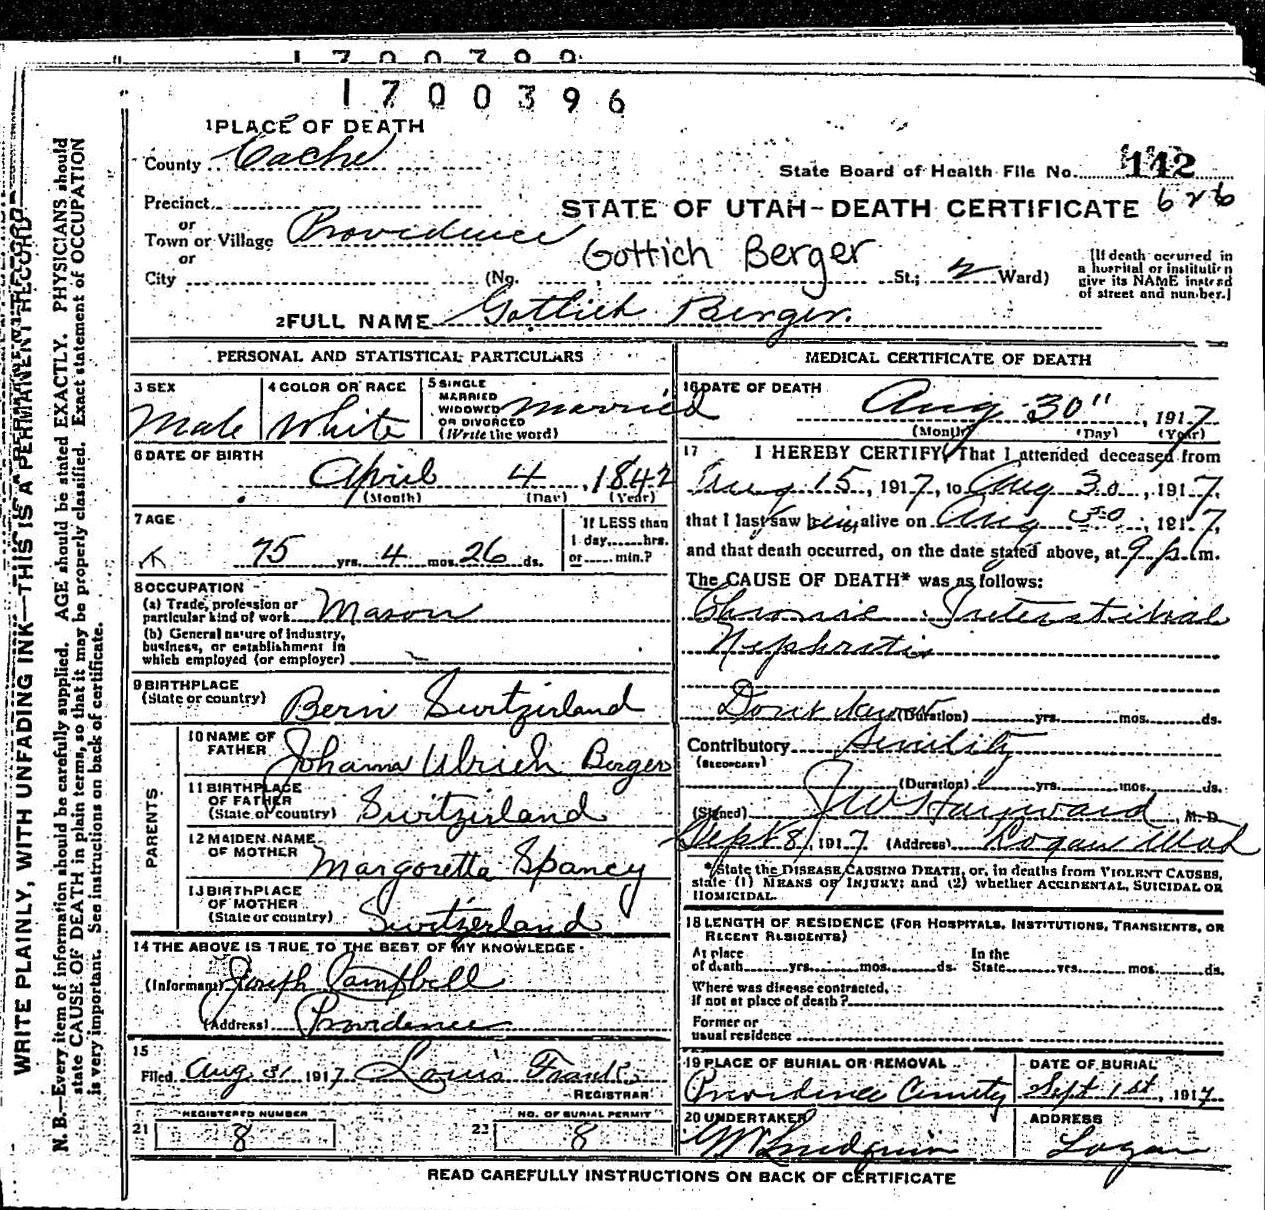 1700396
1 PLACE OF DEATH
County Cache
State Board of Health File No. 142
Precinct
or
STATE OF UTAH—DEATH CERTIFICATE 626
Town or Village Providence
or
Gottich Berger
City (No. St.; 2 Ward)
[If death occurred in a hospital or institution give its NAME instead of street and number.]
2 FULL NAME Gotlich Berger.
PERSONAL AND STATISTICAL PARTICULARS
3 SEX Male
4 COLOR OR RACE White
5 SINGLE MARRIED WIDOWED OR DIVORCED (Write the word) Married
6 DATE OF BIRTH
April 4, 1842
(Month) (Day) (Year)
7 AGE
75 yrs. 4 mos. 26 ds.
If LESS than 1 day, hrs. or min.?
8 OCCUPATION
(a) Trade, profession or particular kind of work Mason
(b) General nature of industry, business, or establishment in which employed (or employer)
9 BIRTHPLACE
(State or country) Bern Switzirland
PARENTS
10 NAME OF FATHER Johann Ulrich Berger
11 BIRTHPLACE OF FATHER (State or country) Switzirland
12 MAIDEN NAME OF MOTHER Margoretta Spancy
13 BIRTHPLACE OF MOTHER (State or country) Switzerland
14 THE ABOVE IS TRUE TO THE BEST OF MY KNOWLEDGE
(Informant) Joseph Campbell
(Address) Providence
15
Filed Aug 31 1917 Louis Franks
REGISTRAR
REGISTERED NUMBER
21 8
NO. OF BURIAL PERMIT
22 8
MEDICAL CERTIFICATE OF DEATH
16 DATE OF DEATH
Aug 30", 1917
(Month) (Day) (Year)
17 I HEREBY CERTIFY, That I attended deceased from
Aug 15, 1917, to Aug 30, 1917,
that I last saw him alive on Aug 30, 1917,
and that death occurred, on the date stated above, at 9 p.m.
The CAUSE OF DEATH* was as follows:
Chronic Interstitial
Nephritis
Dont know (Duration) yrs. mos. ds.
Contributory Senility
(SECONDARY)
(Duration) yrs. mos. ds.
(Signed) JW Hayward, M. D.
Sept 8, 1917 (Address) Logan Utah
*State the DISEASE CAUSING DEATH, or, in deaths from VIOLENT CAUSES,
state (1) MEANS OF INJURY; and (2) whether ACCIDENTAL, SUICIDAL OR
HOMICIDAL.
18 LENGTH OF RESIDENCE (FOR HOSPITALS, INSTITUTIONS, TRANSIENTS, OR
RECENT RESIDENTS)
At place of death yrs. mos. ds. In the State yrs. mos. ds.
Where was disease contracted,
if not at place of death?
Former or
usual residence
19 PLACE OF BURIAL OR REMOVAL
Providence Cemetry
DATE OF BURIAL
Sept 1st, 1917
20 UNDERTAKER
ADDRESS
Logan
READ CAREFULLY INSTRUCTIONS ON BACK OF CERTIFICATE
WRITE PLAINLY, WITH UNFADING INK—THIS IS A PERMANENT RECORD
N. B.—Every item of information should be carefully supplied. AGE should be stated EXACTLY. PHYSICIANS should
state CAUSE OF DEATH in plain terms, so that it may be properly classified. Exact statement of OCCUPATION
is very important. See instructions on back of certificate.